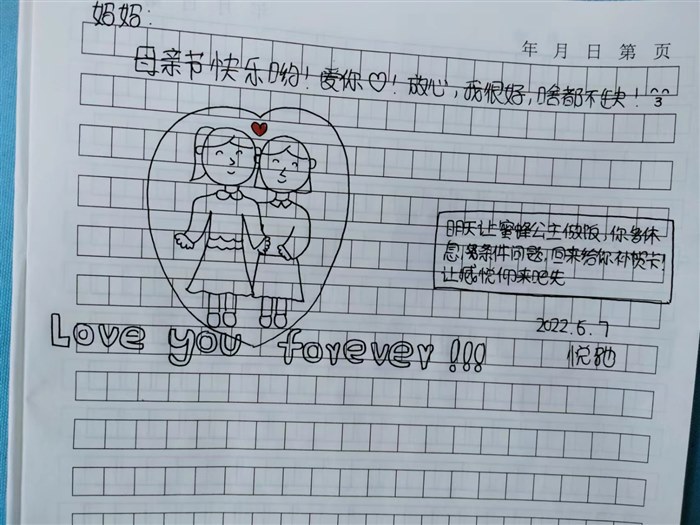 妈妈:
年 月 日 第 页
母亲节快乐哟!爱你♡!放心,我很好,啥都不缺!
明天让蜜蜂公主做饭,你多休
息,条件问题,回来给你补贺卡!
让
2022.5.7
Love you forever!!!
悦驰